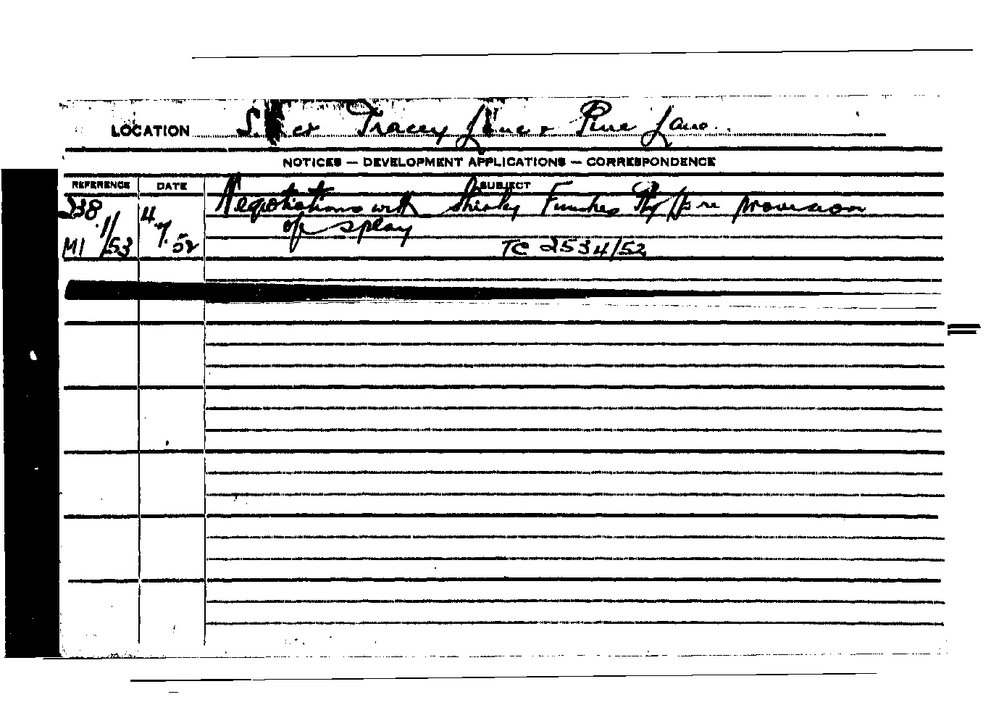 LOCATION S. cr Tracey Lane & Pine Lane
NOTICES — DEVELOPMENT APPLICATIONS — CORRESPONDENCE
REFERENCE DATE SUBJECT
238 4 Negotiations with Shirley re provision
1/53 7 of splay
M1 52 TC 2534/52